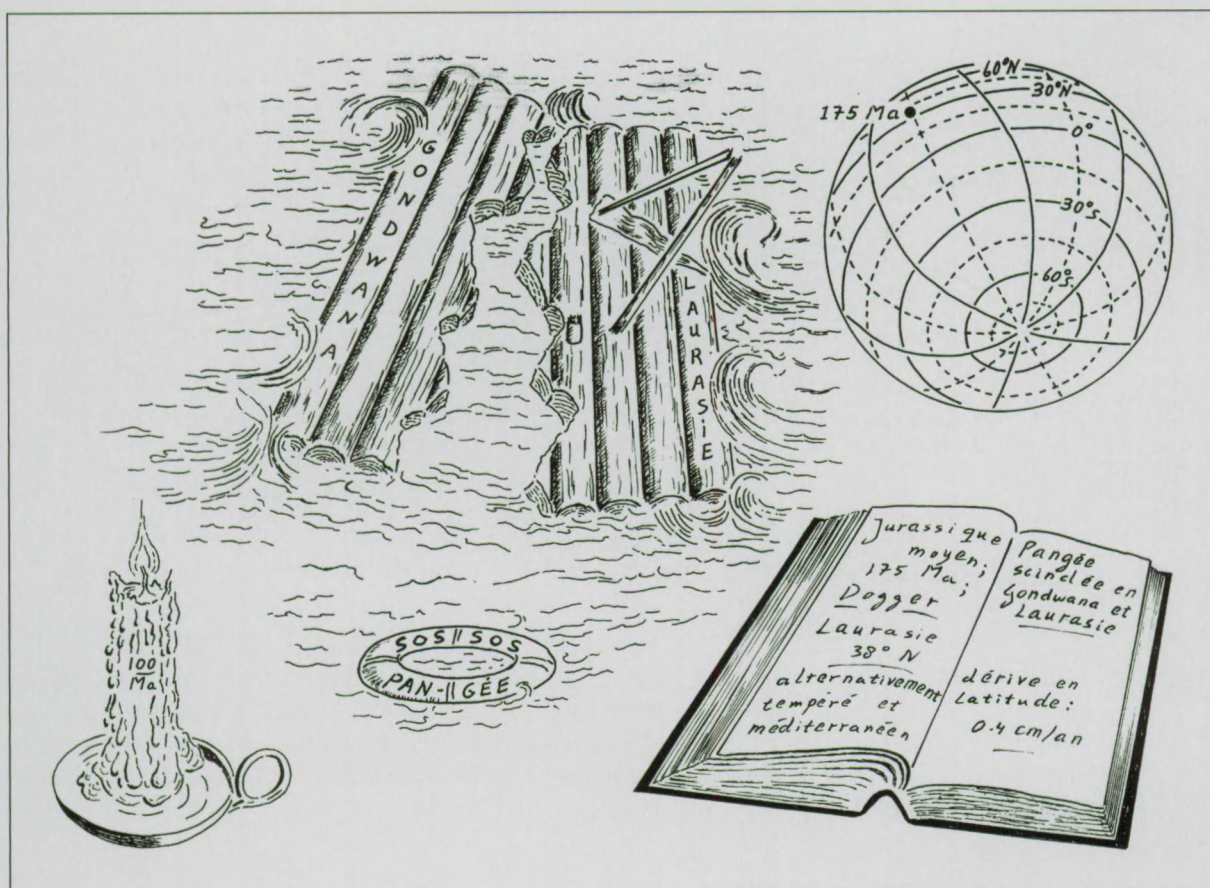 GONDWANA
LAURASIE
60°N
30°N
175 Ma
0°
30°S
60°S
100
Ma
SOS||SOS
PAN-||GÉE
Jurassique
moyen;
175 Ma;
Dogger
Laurasie
38° N
alternativement
tempéré et
méditerranéen
Pangée
scindée en
Gondwana et
Laurasie
dérive en
Latitude:
0.4 cm/an